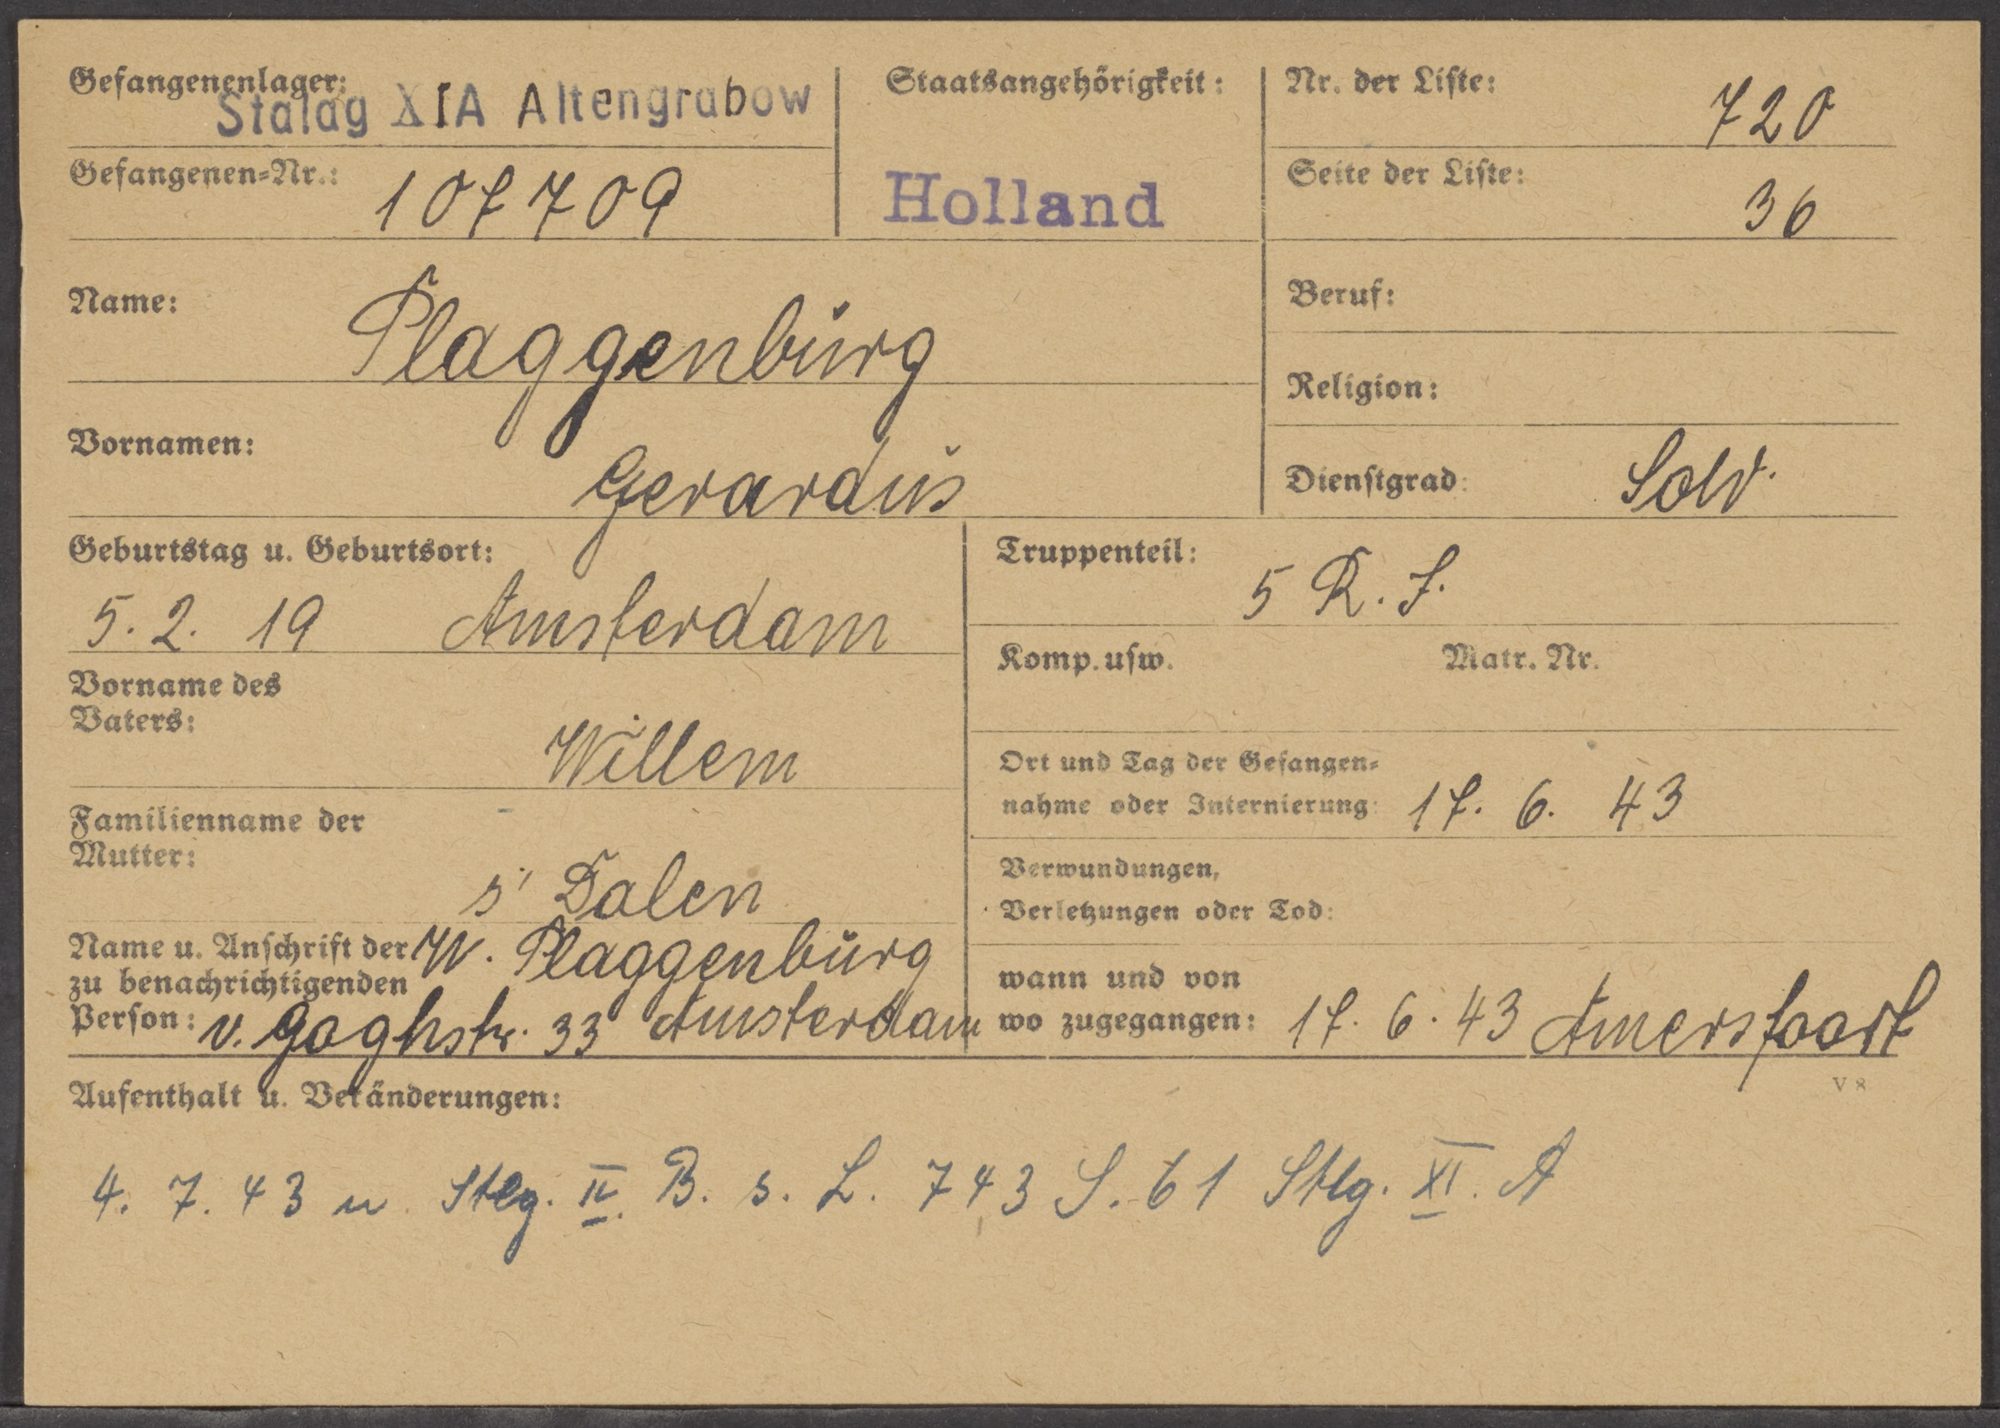 Gefangenenlager: Stalag XIA Altengrabow
Staatsangehörigkeit: Holland
Nr. der Liste: 720
Gefangenen=Nr.: 107709
Seite der Liste: 36
Name: Plaggenburg
Beruf:
Religion:
Vornamen: Gerardus
Dienstgrad: Sold.
Geburtstag u. Geburtsort:
5. 2. 19 Amsterdam
Truppenteil: 5 R. I.
Komp. usw. Matr. Nr.
Vorname des
Vaters: Willem
Ort und Tag der Gefangen=
nahme oder Internierung: 17. 6. 43
Familienname der
Mutter: s' Dalen
Verwundungen,
Verletzungen oder Tod:
Name u. Anschrift der W. Plaggenburg
zu benachrichtigenden
Person: v. Goghstr. 33 Amsterdam
wann und von
wo zugegangen: 17. 6. 43 Amersfoort
V 8
Aufenthalt u. Veränderungen:
4. 7. 43 n. Stlg. IV. B. s. L. 743 S. 61 Stlg. XI. A